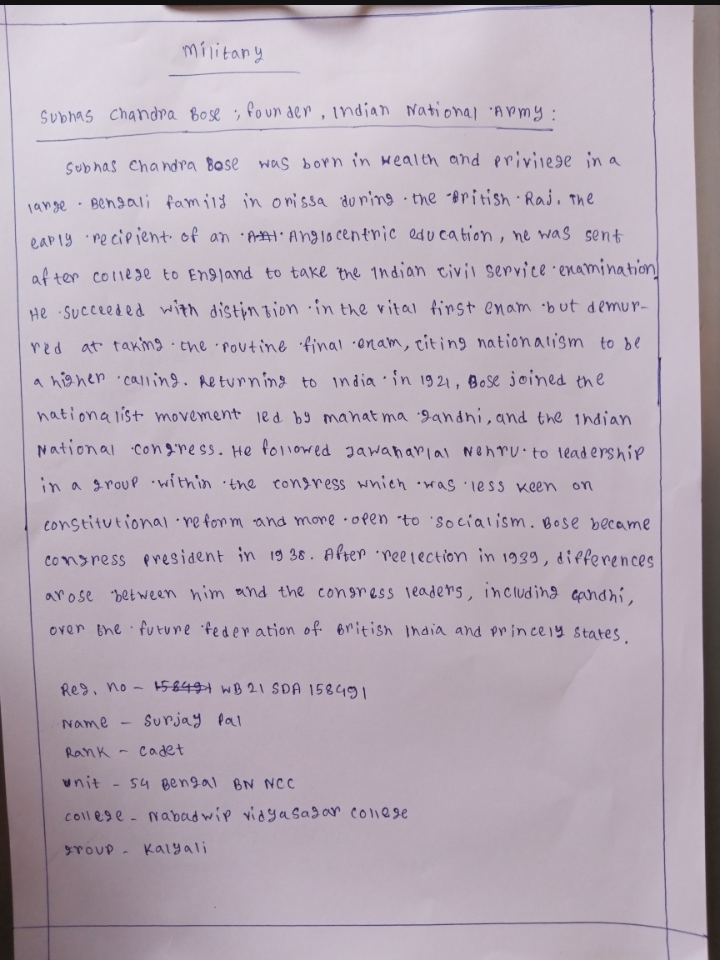 Military
Subhas Chandra Bose ; founder , Indian National Army :
Subhas Chandra Bose was born in wealth and privilege in a
large Bengali family in Orissa during the British Raj. The
early recipient of an Anglocentric education, he was sent
after college to England to take the Indian civil service examination
He succeeded with distintion in the vital first exam but demur-
red at taking the routine final exam, citing nationalism to be
a higher calling. Returning to India in 1921, Bose joined the
nationalist movement led by mahatma Gandhi, and the Indian
National congress. He followed Jawaharlal Nehru to leadership
in a group within the congress which was less keen on
constitutional reform and more open to socialism. Bose became
congress president in 1938. After reelection in 1939, differences
arose between him and the congress leaders, including Gandhi,
over the future federation of British India and Princely States.
Reg. no - 158491 WB 21 SDA 158491
Name - Surjay Pal
Rank - Cadet
Unit - 54 Bengal BN NCC
College - Nabadwip vidyasagar college
group - Kalyali